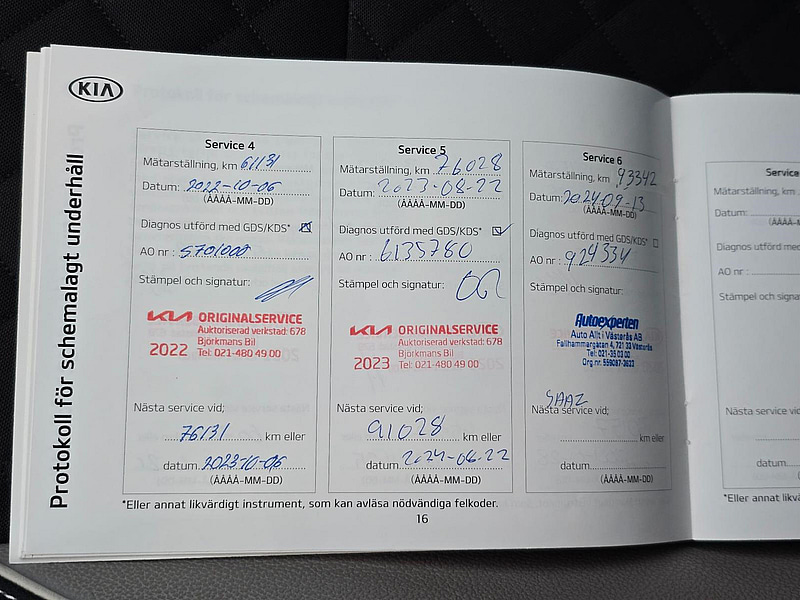 KIA
Protokoll för schemalagt underhåll
Service 4
Mätarställning, km 61131
Datum: 2022-10-06
(ÅÅÅÅ-MM-DD)
Diagnos utförd med GDS/KDS*
AO nr : 5701000
Stämpel och signatur:
KIA ORIGINALSERVICE
Auktoriserad verkstad: 678
Björkmans Bil
2022 Tel: 021-480 49 00
Nästa service vid;
76131 km eller
datum 2023-10-06
(ÅÅÅÅ-MM-DD)
Service 5
Mätarställning, km 76028
Datum: 2023-08-22
(ÅÅÅÅ-MM-DD)
Diagnos utförd med GDS/KDS*
AO nr : 6135780
Stämpel och signatur:
KIA ORIGINALSERVICE
Auktoriserad verkstad: 678
Björkmans Bil
2023 Tel: 021-480 49 00
Nästa service vid;
91028 km eller
datum 2024-08-22
(ÅÅÅÅ-MM-DD)
Service 6
Mätarställning, km 93342
Datum: 2024-09-13
(ÅÅÅÅ-MM-DD)
Diagnos utförd med GDS/KDS*
AO nr : 924334
Stämpel och signatur:
Autoexperten
Auto Allt i Västerås AB
Fallhammargatan 4, 721 33 Västerås
Tel: 021-35 03 00
Org.nr. 559087-3622
Nästa service vid;
km eller
datum
(ÅÅÅÅ-MM-DD)
*Eller annat likvärdigt instrument, som kan avläsa nödvändiga felkoder.
16
Service
Mätarställning, km
Datum:
(ÅÅÅÅ-M
Diagnos utförd med
AO nr :
Stämpel och signatur
Nästa service vid
datum
(ÅÅÅÅ-M
*Eller annat likvä